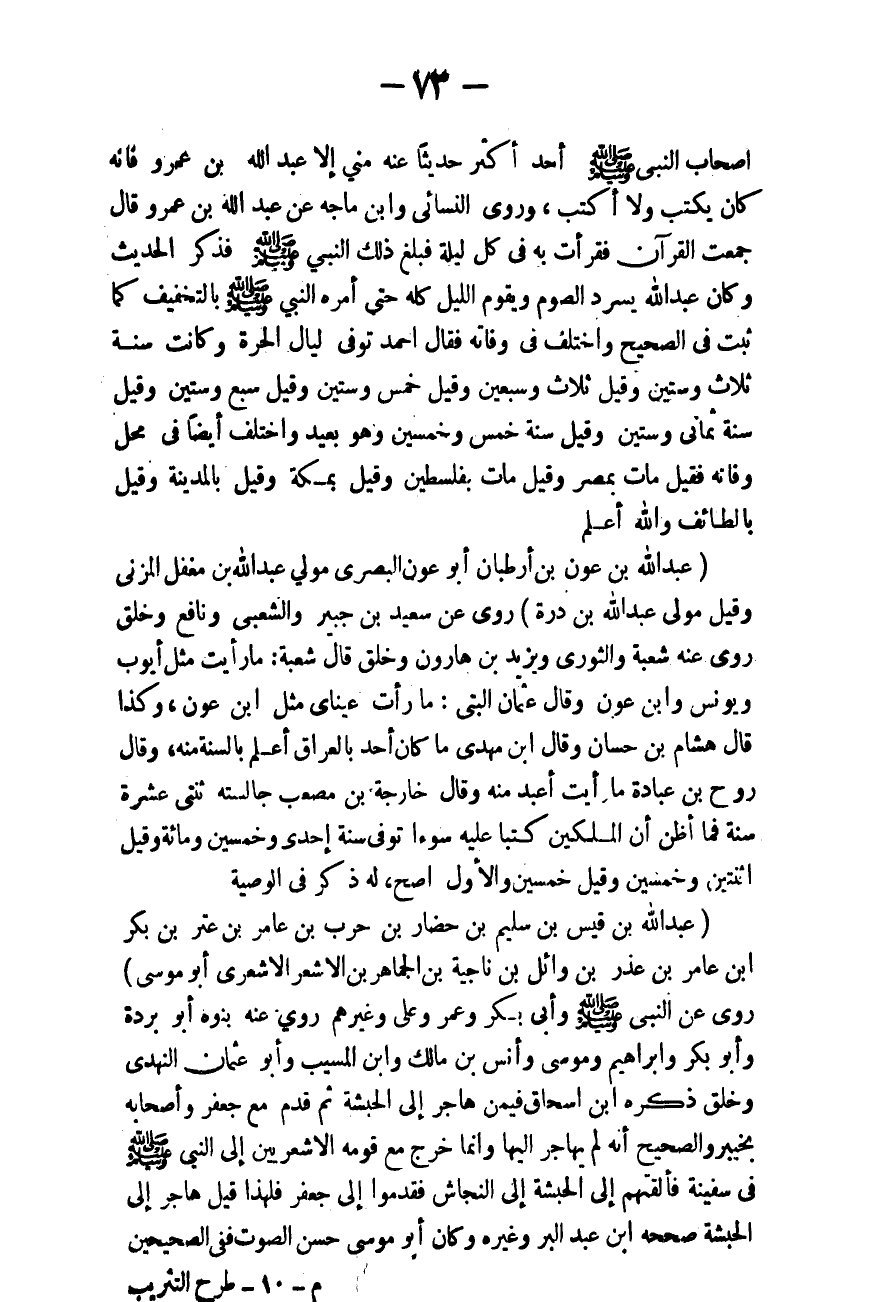 — ٧٣ —
اصحاب النبى ﷺ أحد أكثر حديثاً عنه مني إلا عبد الله بن عمرو فانه
كان يكتب ولا أكتب ، وروى النسائى وابن ماجه عن عبد الله بن عمرو قال
جمعت القرآن فقرأت به فى كل ليلة فبلغ ذلك النبي ﷺ فذكر الحديث
وكان عبدالله يسرد الصوم ويقوم الليل كله حتي أمره النبي ﷺ بالتخفيف كما
ثبت فى الصحيح واختلف فى وفاته فقال احمد توفى ليال الحرة وكانت سنة
ثلاث وستين وقيل ثلاث وسبعين وقيل خمس وستين وقيل سبع وستين وقيل
سنة ثمانى وستين وقيل سنة خمس وخمسين وهو بعيد واختلف أيضاً فى محل
وفاته فقيل مات بمصر وقيل مات بفلسطين وقيل بمكة وقيل بالمدينة وقيل
بالطائف والله أعلم
( عبدالله بن عون بن أرطبان أبو عون البصرى مولي عبدالله بن مغفل المزنى
وقيل مولى عبدالله بن درة ) روى عن سعيد بن جبير والشعبى ونافع وخلق
روى عنه شعبة والثورى ويزيد بن هارون وخلق قال شعبة: مارأيت مثل أيوب
ويونس وابن عون وقال عثمان البتى : ما رأت عيناى مثل ابن عون ، وكذا
قال هشام بن حسان وقال ابن مهدى ما كان أحد بالعراق أعلم بالسنة منه، وقال
روح بن عبادة ما رأيت أعبد منه وقال خارجة بن مصعب جالسته ثنتى عشرة
سنة فما أظن أن الملكين كتبا عليه سوءا توفى سنة إحدى وخمسين ومائة وقيل
اثنتين وخمسين وقيل خمسين والأول اصح، له ذكر فى الوصية
( عبدالله بن قيس بن سليم بن حضار بن حرب بن عامر بن عتر بن بكر
ابن عامر بن عذر بن وائل بن ناجية بن الجماهر بن الاشعر الاشعرى أبو موسى )
روى عن النبى ﷺ وأبى بكر وعمر وعلى وغيرهم روي عنه بنوه أبو بردة
وأبو بكر وابراهيم وموسى وأنس بن مالك وابن المسيب وأبو عثمان النهدى
وخلق ذكره ابن اسحاق فيمن هاجر إلى الحبشة ثم قدم مع جعفر وأصحابه
بخيبر والصحيح أنه لم يهاجر اليها وانما خرج مع قومه الاشعريين إلى النبى ﷺ
فى سفينة فألقتهم إلى الحبشة إلى النجاش فقدموا إلى جعفر فلهذا قيل هاجر إلى
الحبشة صححه ابن عبد البر وغيره وكان أبو موسى حسن الصوت ففى الصحيحين
م – ١٠ – طرح التثريب